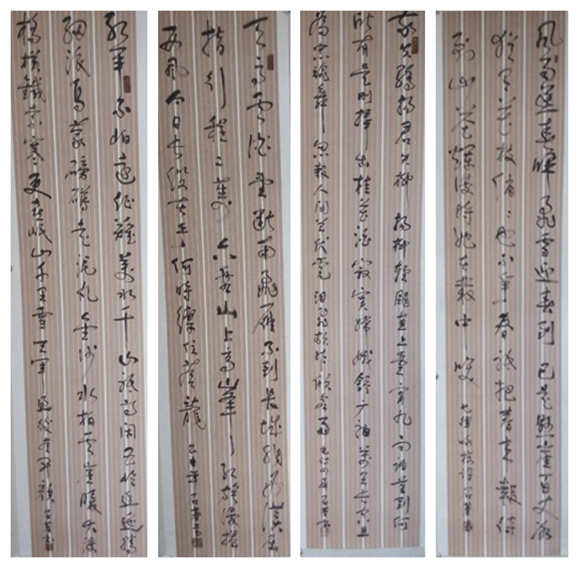 风雨送春归飞雪迎春到已是悬崖百丈冰
犹有花枝俏俏也不争春只把春来报待
到山花烂漫时她在丛中笑
我失骄杨君失柳杨柳轻飏直上重霄九问讯吴刚何
所有吴刚捧出桂花酒寂寞嫦娥舒广袖万里长空且
为忠魂舞忽报人间曾伏虎泪飞顿作倾盆雨
天高云淡望断南飞雁不到长城非好汉屈
指行程二万六盘山上高峰红旗漫卷
西风今日长缨在手何时缚住苍龙
红军不怕远征难万水千山只等闲五岭逶迤腾
细浪乌蒙磅礴走泥丸金沙水拍云崖暖大渡
桥横铁索寒更喜岷山千里雪三军过后尽开颜